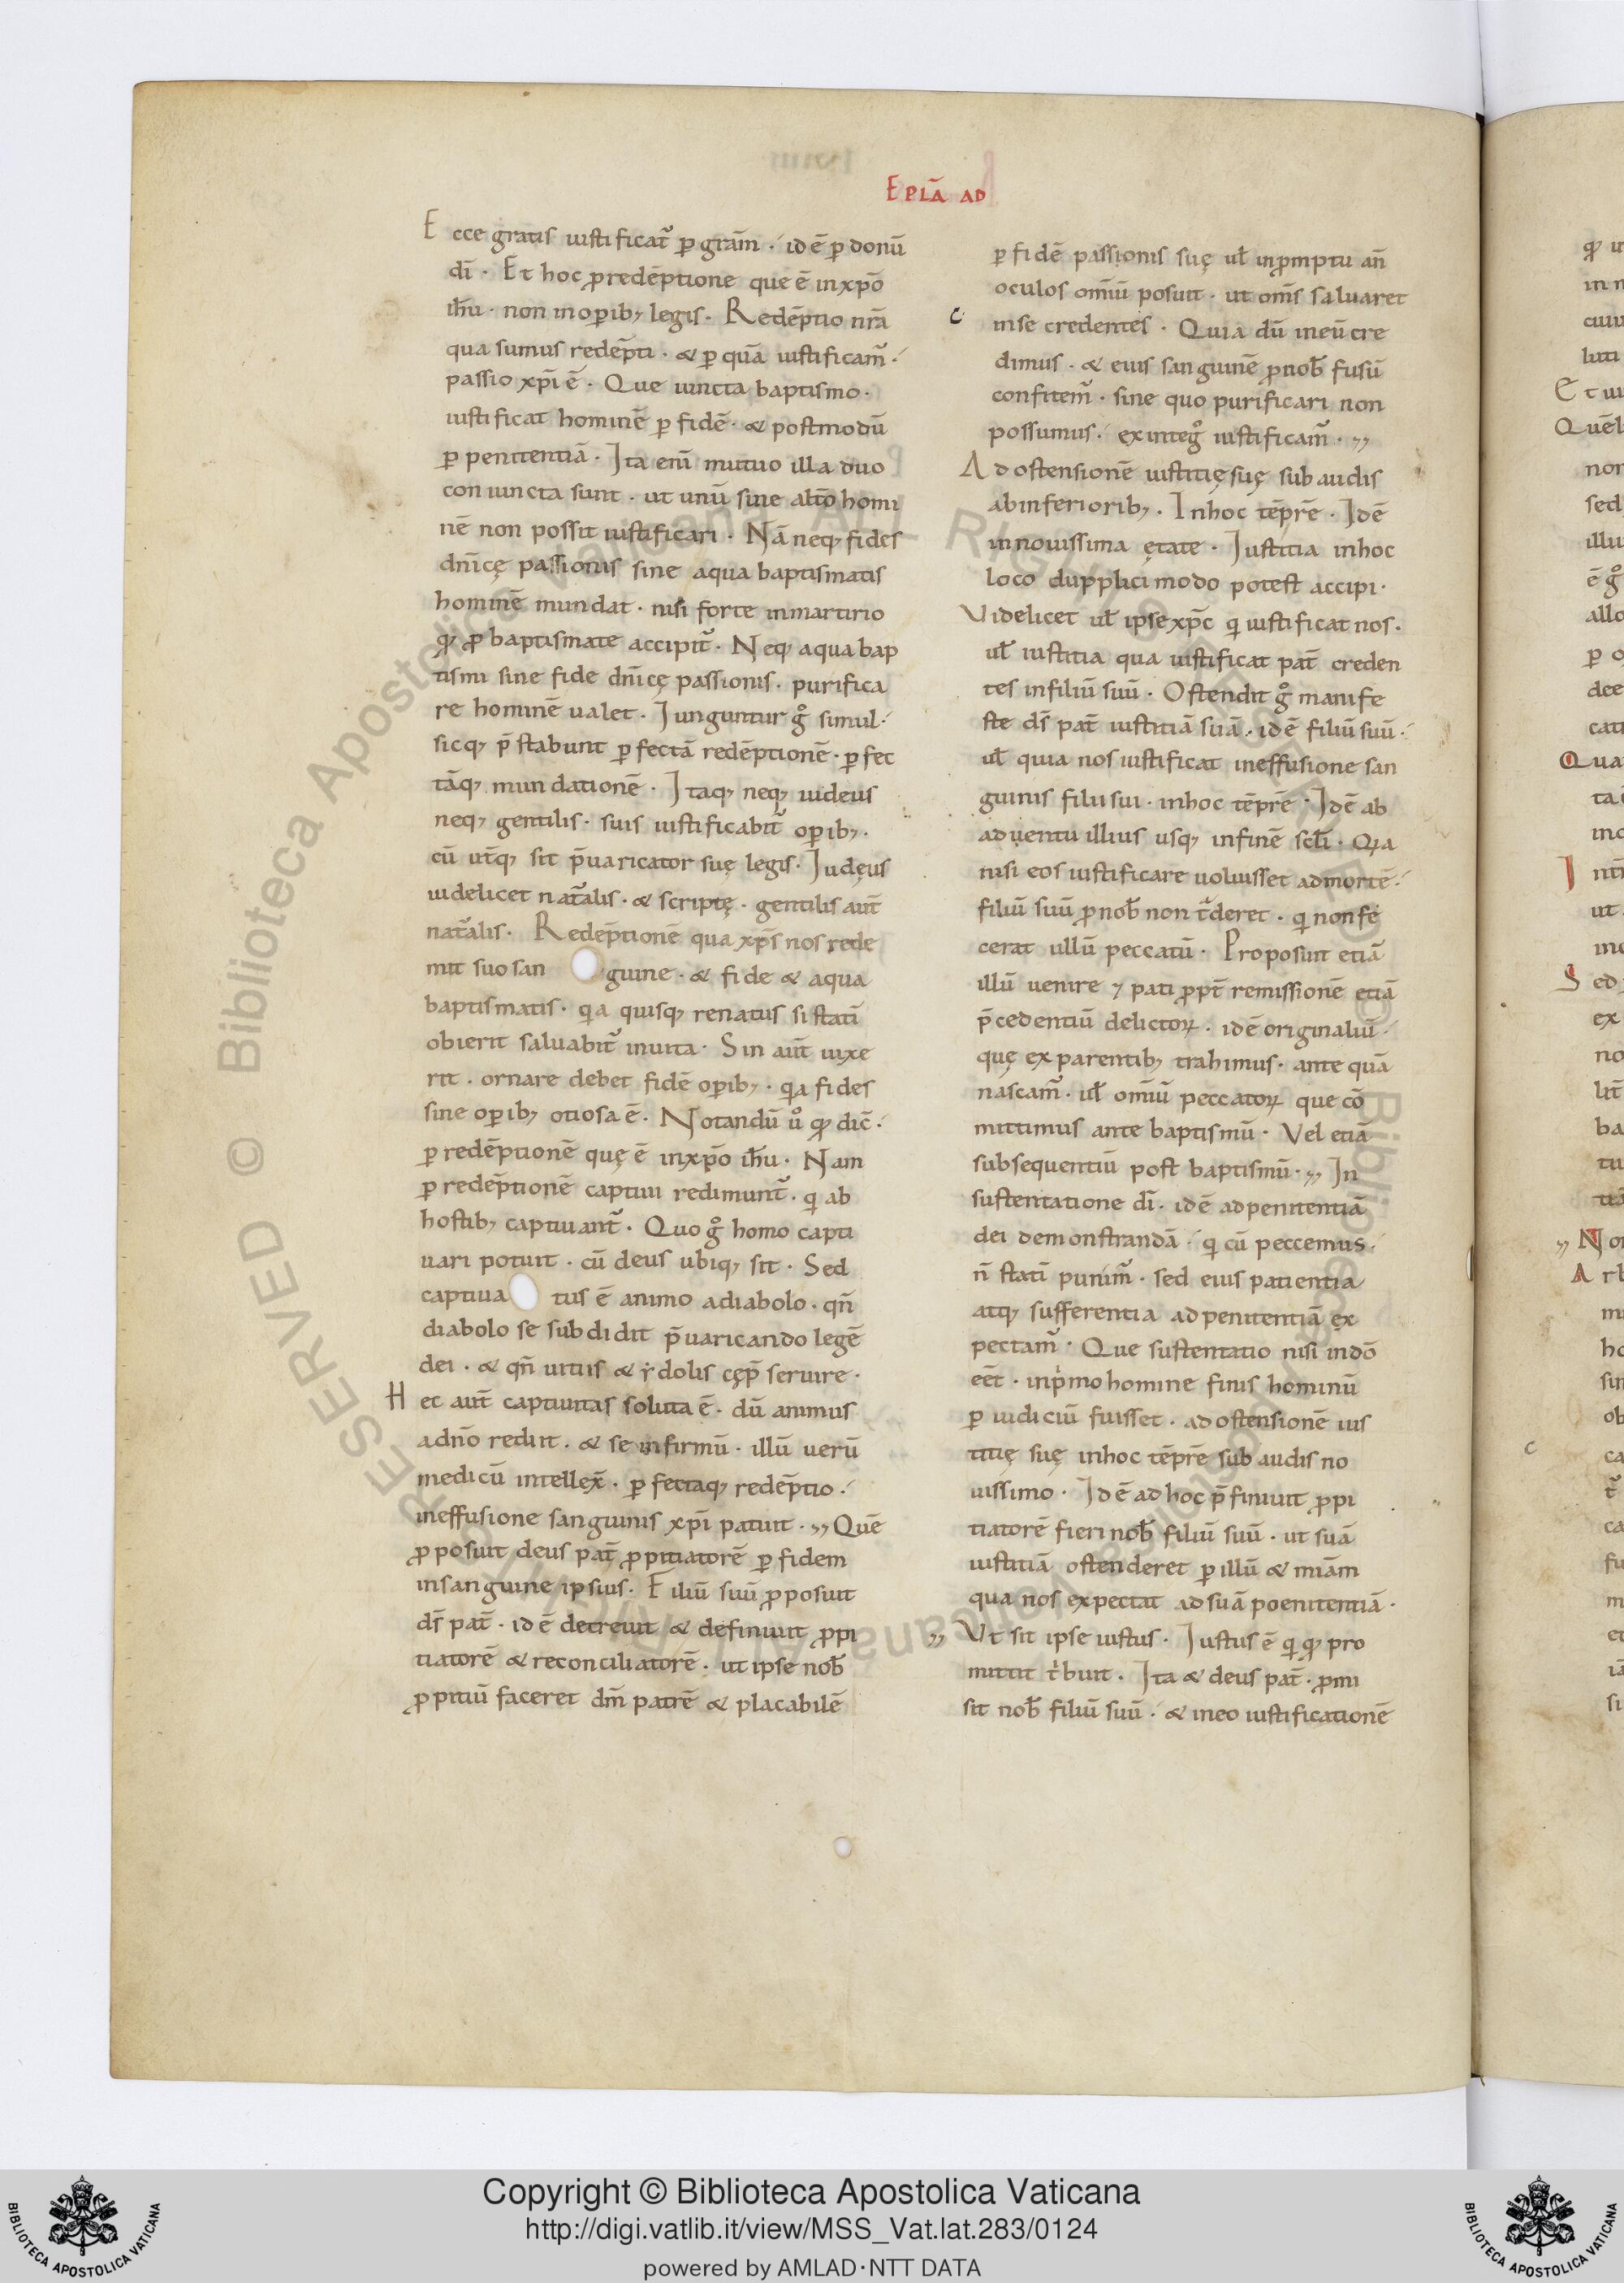 EPLĀ AD
Ecce gratis iustificat᷑ ꝑ grām · idē ꝑ donū
dī · Et hoc ꝑ redēptione que ē in xp̄o
ih̄u · non in oꝑib; legis · Redēptio nr̄a
qua sumus redēpti · & ꝑ quā iustificam᷑ ·
passio xp̄i ē · Que iuncta baptismo ·
iustificat hominē ꝑ fidē · & postmodū
ꝑ penitentiā · Ita enī mutuo illa duo
coniuncta sunt · ut unū sine alt̄o homi
nē non possit iustificari · Nā neq; fides
dn̄icę passionis sine aqua baptismatis
hominē mundat · nisi forte in martirio
qđ ꝓ baptismate accipit᷑ · Neq; aqua bap
tismi sine fide dn̄icę passionis · purifica
re hominē ualet · Iunguntur gͦ simul ·
sicq; p̄stabunt ꝑfectā redēptionē · ꝑfec
tāq; mundationē · Itaq; neq; iudeus
neq; gentilis · suis iustificabit᷑ oꝑib; ·
cū ut̄q; sit p̄uaricator suę legis · Iudęus
uidelicet nat᷑alis · & scriptę · gentilis aut̄
nat᷑alis · Redēptionē qua xp̄s nos rede
mit suo san guine · & fide & aqua
baptismatis · qa quisq; renatus si statī
obierit saluabit᷑ in uita · Sin aut̄ uixe
rit · ornare debet fidē oꝑib; · qa fides
sine oꝑib; otiosa ē · Notandū uͦ qđ dic̄ ·
ꝑ redēptionē quę ē in xp̄o ih̄u · Nam
ꝑ redēptionē captiui redimunt᷑ · q ab
hostib; captiuant᷑ · Quo gͦ homo capti
uari potuit · cū deus ubiq; sit · Sed
captiua tus ē animo a diabolo · qn̄
diabolo se subdidit p̄uaricando legē
dei · & qn̄ uitiis & ẏdolis cęp̄ seruire ·
Hec aut̄ captiuitas soluta ē · dū animus
ad n̄o rediit · & se infirmū · illū uerū
medicū intellex̄ · ꝑfectaq; redēptio ·
in effusione sanguinis xp̄i patuit · ,, Quē
ꝓposuit deus pat̄ ꝓpitiatorē ꝑ fidem
in sanguine ipsius · Filiū suū ꝓposuit
ds̄ pat̄ · id ē decreuit & definiuit ꝓpi
tiatorē & reconciliatorē · ut ipse nob̄
ꝓpitiū faceret dm̄ patrē & placabilē
ꝑ fidē passionis suę ul̄ in ꝓmptu an̄
oculos omīū posuit · ut om̄s saluaret
in se credentes · Quia dū in eū cre
dimus · & eius sanguinē ꝓ nob̄ fusū
confitem᷑ · sine quo purificari non
possumus · ex integͦ iustificam᷑ · ,,
Ad ostensionē iustitię suę subaudis
ab inferiorib; · In hoc tēpr̄e · Idē
in nouissima ętate · Iustitia in hoc
loco dupplici modo potest accipi ·
Videlicet ul̄ ipse xp̄c q iustificat nos ·
ul̄ iustitia qua iustificat pat̄ creden
tes in filiū suū · Ostendit gͦ manife
ste ds̄ pat̄ iustitiā suā · id ē filiū suū ·
ul̄ quia nos iustificat in effusione san
guinis filii sui · in hoc tēpr̄e · Idē ab
aduentu illius usq; in finē scl̄i · Qa
nisi eos iustificare uoluisset ad mortē ·
filiū suū ꝓ nob̄ non t᷑deret · q non fe
cerat ullū peccatū · Proposuit etiā
illū uenire ⁊ pati ꝓpt̄ remissionē etiā
p̄cedentiū delictoꝝ · id ē originaliū ·
quę ex parentib; trahimus · ante quā
nascam᷑ · ul̄ omīū peccatoꝝ que cō
mittimus ante baptismū · Vel etiā
subsequentiū post baptismū · ,, In
sustentatione dī · id ē ad penitentiā
dei demonstrandā · q cū peccemus ·
n̄ statī punim᷑ · sed eius patientia
atq; sufferentia ad penitentiā ex
pectam᷑ · Que sustentatio nisi in dō
eēt · in pͥmo homine finis hominū
ꝑ iudiciū fuisset · ad ostensionē ius
titię suę in hoc tēpr̄e subaudis no
uissimo · Idē ad hoc p̄finiuit ꝓpi
tiatorē fieri nob̄ filiū suū · ut suā
iustitiā ostenderet ꝑ illū & miām
qua nos expectat ad suā poenitentiā ·
,, Vt sit ipse iustus · Iustus ē q qđ pro
mittit tͥbuit · Ita & deus pat̄ · ꝓmi
sit nob̄ filiū suū · & in eo iustificationē
Copyright © Biblioteca Apostolica Vaticana
http://digi.vatlib.it/view/MSS_Vat.lat.283/0124
powered by AMLAD·NTT DATA
BIBLIOTECA APOSTOLICA VATICANA
BIBLIOTECA APOSTOLICA VATICANA